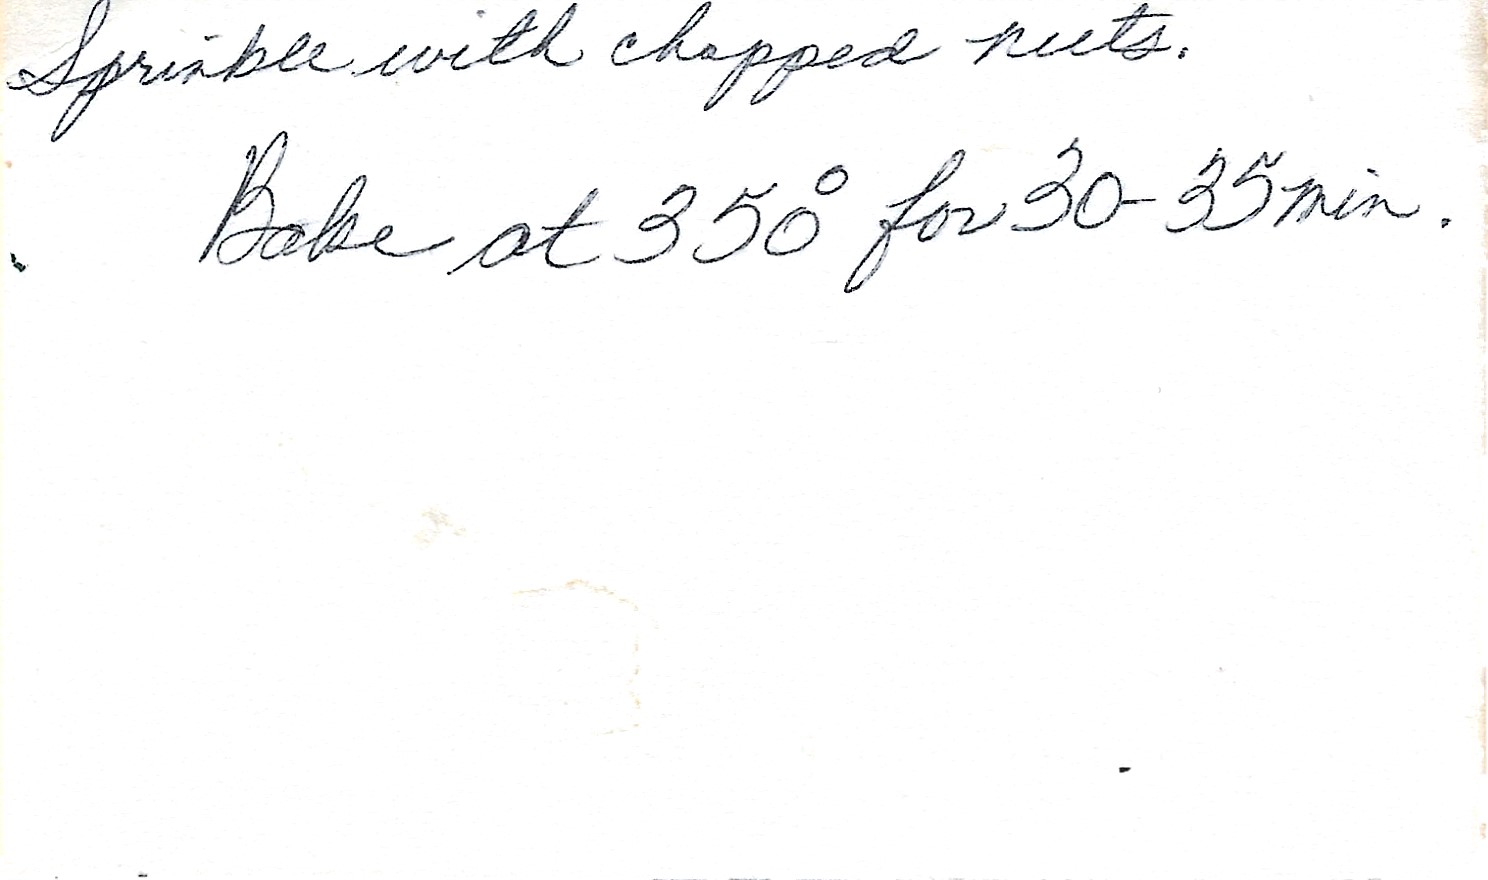 Sprinkle with chopped nuts.
Bake at 350° for 30-35 min.